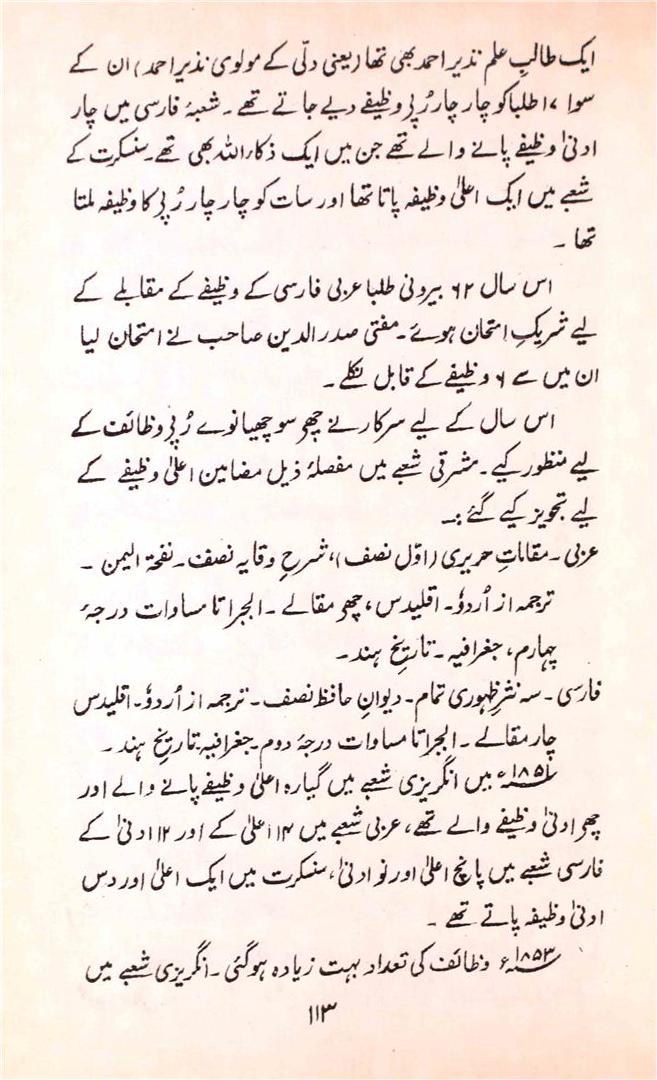 ایک طالبِ علم نذیر احمد بھی تھا (یعنی دلّی کے مولوی نذیر احمد) ان کے
سوا ۱۷ طلبا کو چار چار رُپے وظیفے دیے جاتے تھے ۔ شعبۂ فارسی میں چار
ادنیٰ وظیفے پانے والے تھے جن میں ایک ذکاءاللہ بھی تھے۔ سنسکرت کے
شعبے میں ایک اعلیٰ وظیفہ پاتا تھا اور سات کو چار چار رُپے کا وظیفہ ملتا
تھا ۔
اس سال ۶۲ بیرونی طلبا عربی فارسی کے وظیفے کے مقابلے کے
لیے شریکِ امتحان ہوئے۔ مفتی صدر الدین صاحب نے امتحان لیا
ان میں سے ۶ وظیفے کے قابل نکلے ۔
اس سال کے لیے سرکار نے چھو سو چھیانوے رُپے وظائف کے
لیے منظور کیے۔ مشرقی شعبے میں مفصلۂ ذیل مضامین اعلیٰ وظیفے کے
لیے تجویز کیے گئے :۔
عربی ۔ مقاماتِ حریری (اوّل نصف)، شرحِ وقایہ نصف۔ نفحۃ الیمن ۔
ترجمہ از اُردوٗ۔ اقلیدس، چھو مقالے ۔ الجبرا تا مساوات درجۂ
چہارم، جغرافیہ ۔ تاریخِ ہند۔
فارسی ۔ سہ نثرِ ظہوری تمام ۔ دیوانِ حافظ نصف ۔ ترجمہ از اُردوٗ۔ اقلیدس
چار مقالے ۔ الجبرا تا مساوات درجۂ دوم ۔ جغرافیہ تاریخِ ہند ۔
۱۸۵۱ء میں انگریزی شعبے میں گیارہ اعلیٰ وظیفے پانے والے اور
چھو ادنیٰ وظیفے والے تھے، عربی شعبے میں ۱۴ اعلیٰ کے اور ۱۲ ادنیٰ کے
فارسی شعبے میں پانچ اعلیٰ اور نو ادنیٰ، سنسکرت میں ایک اعلیٰ اور دس
ادنیٰ وظیفہ پاتے تھے ۔
۱۸۵۳ء وظائف کی تعداد بہت زیادہ ہوگئی ۔ انگریزی شعبے میں
۱۱۳